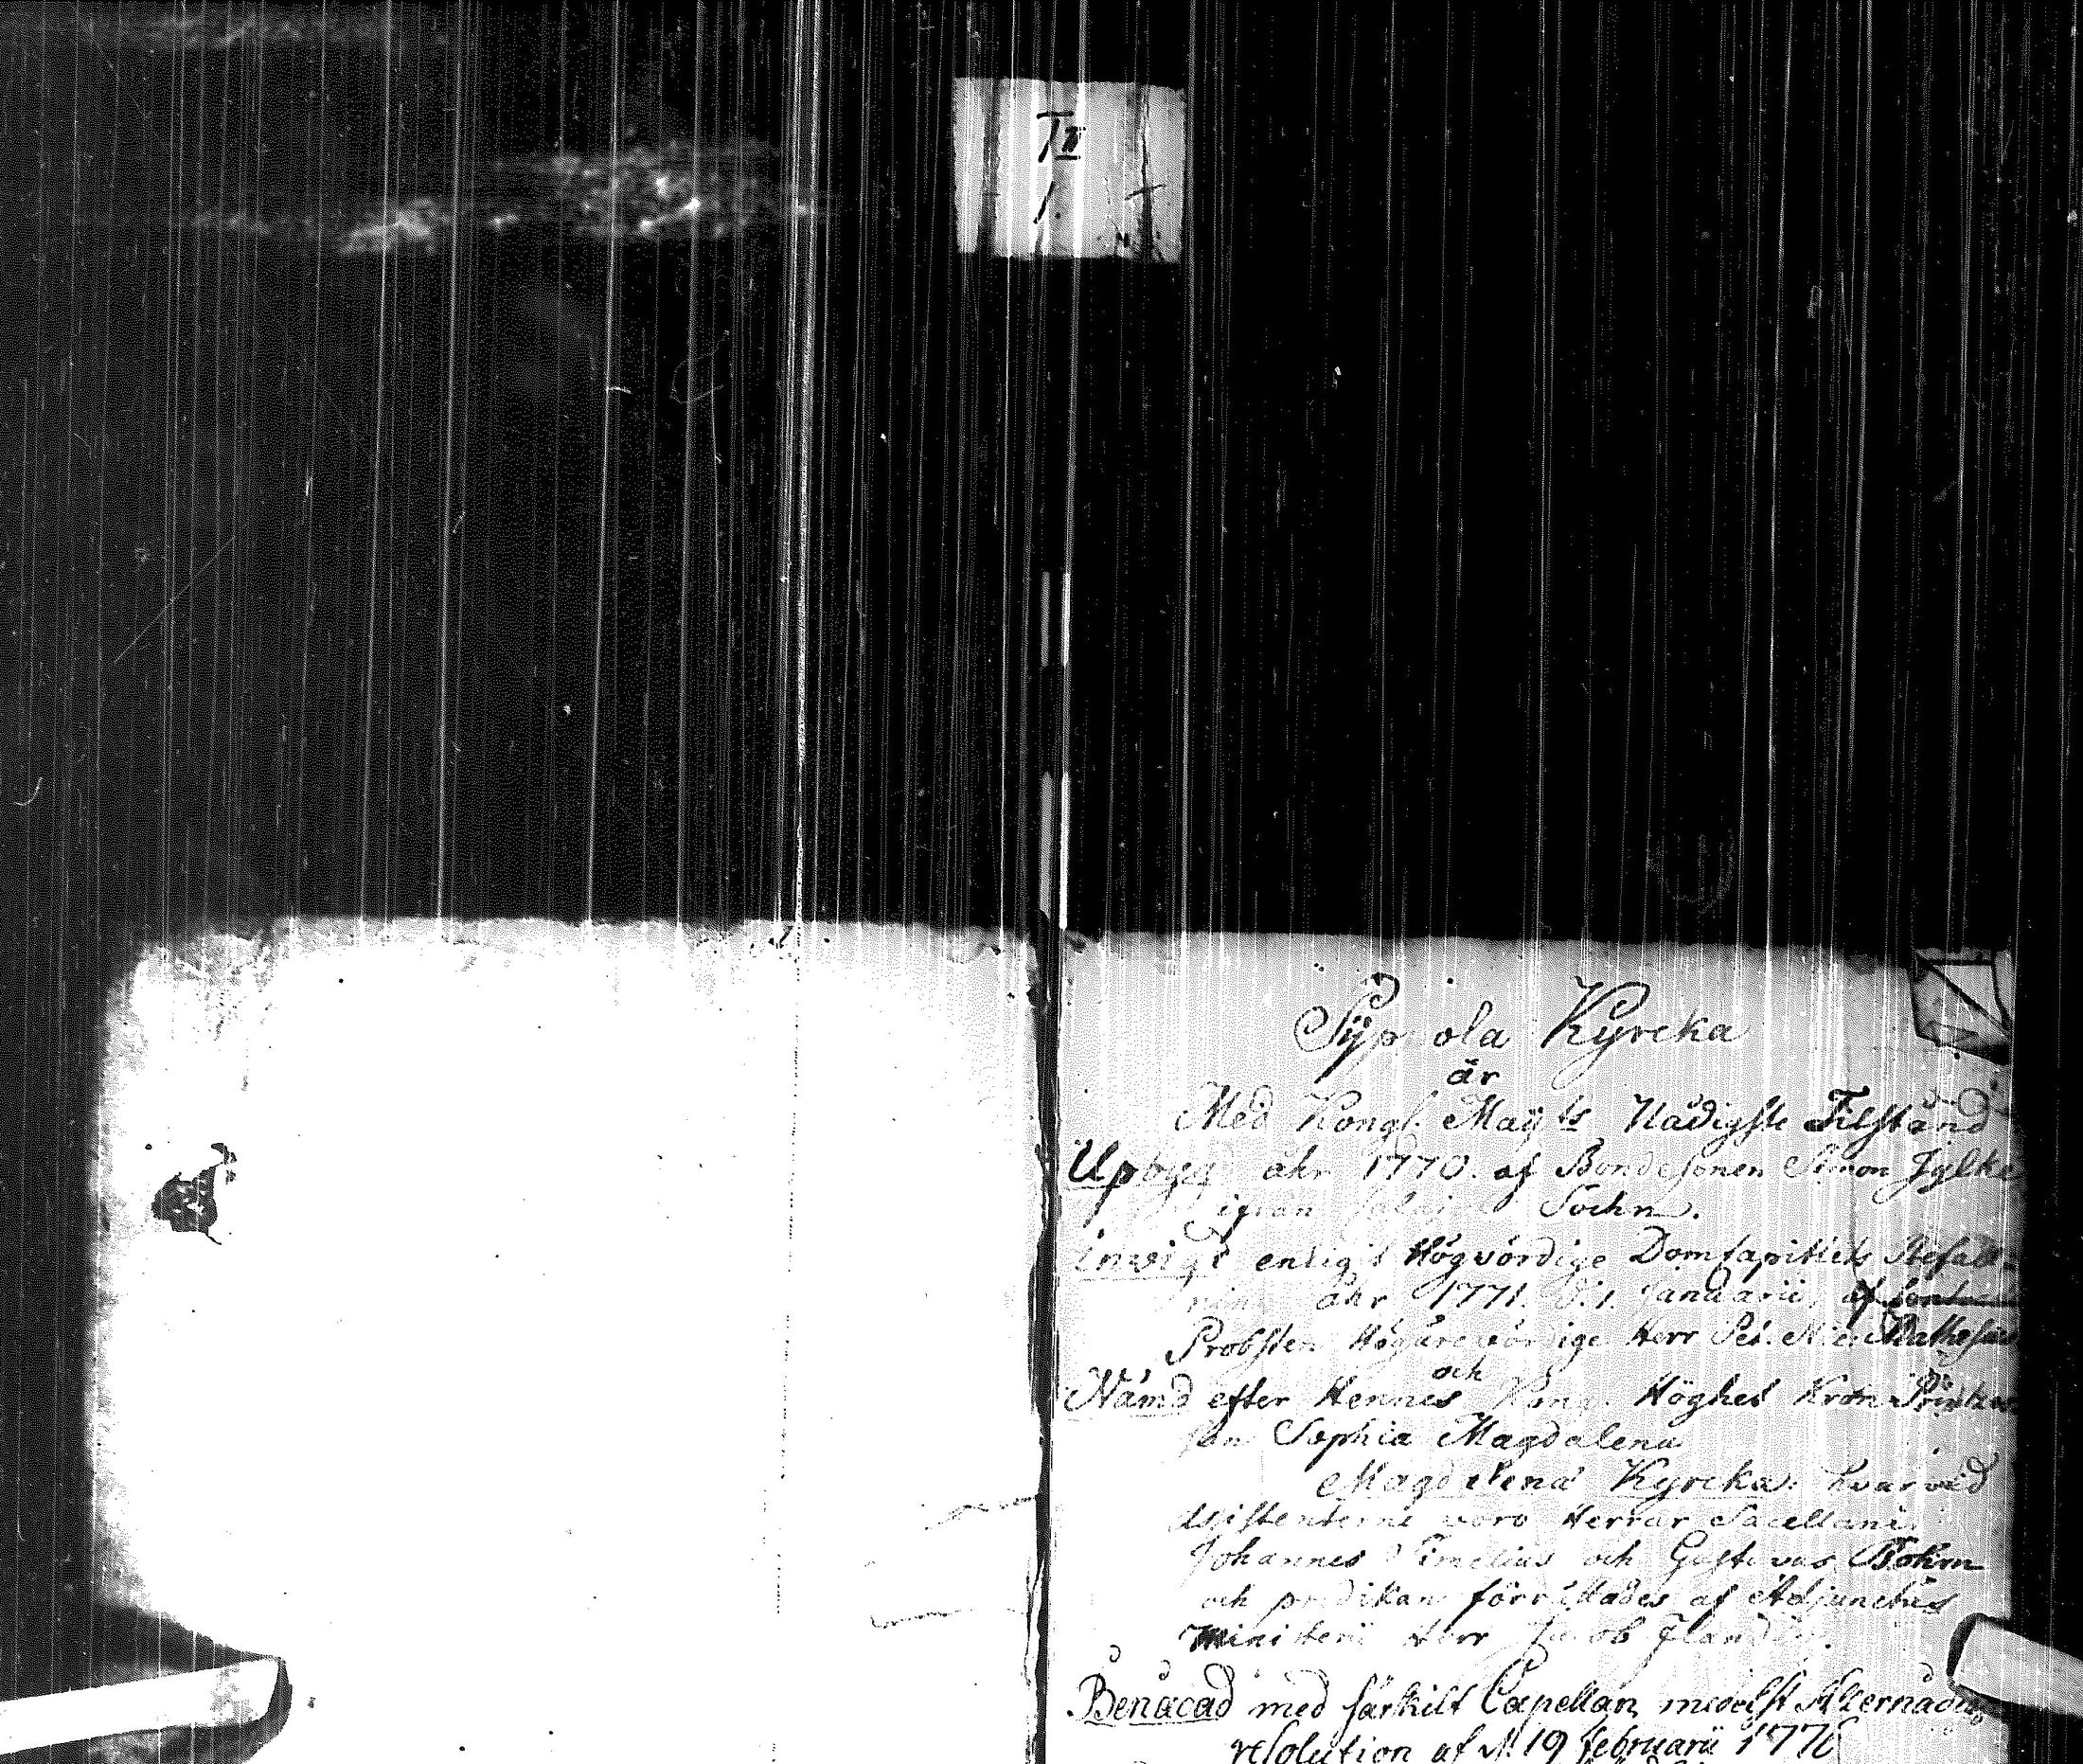 I II
1.
Syp ola Kyrcka
är
Med Kongl. Maÿts Nådigste Tilstånd
Upbygd åhr 1770. af Bondesonen Simon Jylke
ifrån Sochn.
invigd enligt Högvördige DomCapitlets Befall-
ning åhr 1771. d. 1. Januarii, af
Probsten Högärevördige Herr Pet. Nic. Mathesius
och
Nämd efter Hennes Kongl. Höghet Kron Printzes-
san Sophia Magdalena
Magdalena Kyrcka: hvarvid
Assistenterne voro Herrar Sacellani
Johannes och Gustavus Bohm
och predikan förrättades af Adjunctus
Ministerii Herr Jacob
Benåcad med särkilt Capellan medelst Allernådigste
resolution af d. 19 februarii 1776